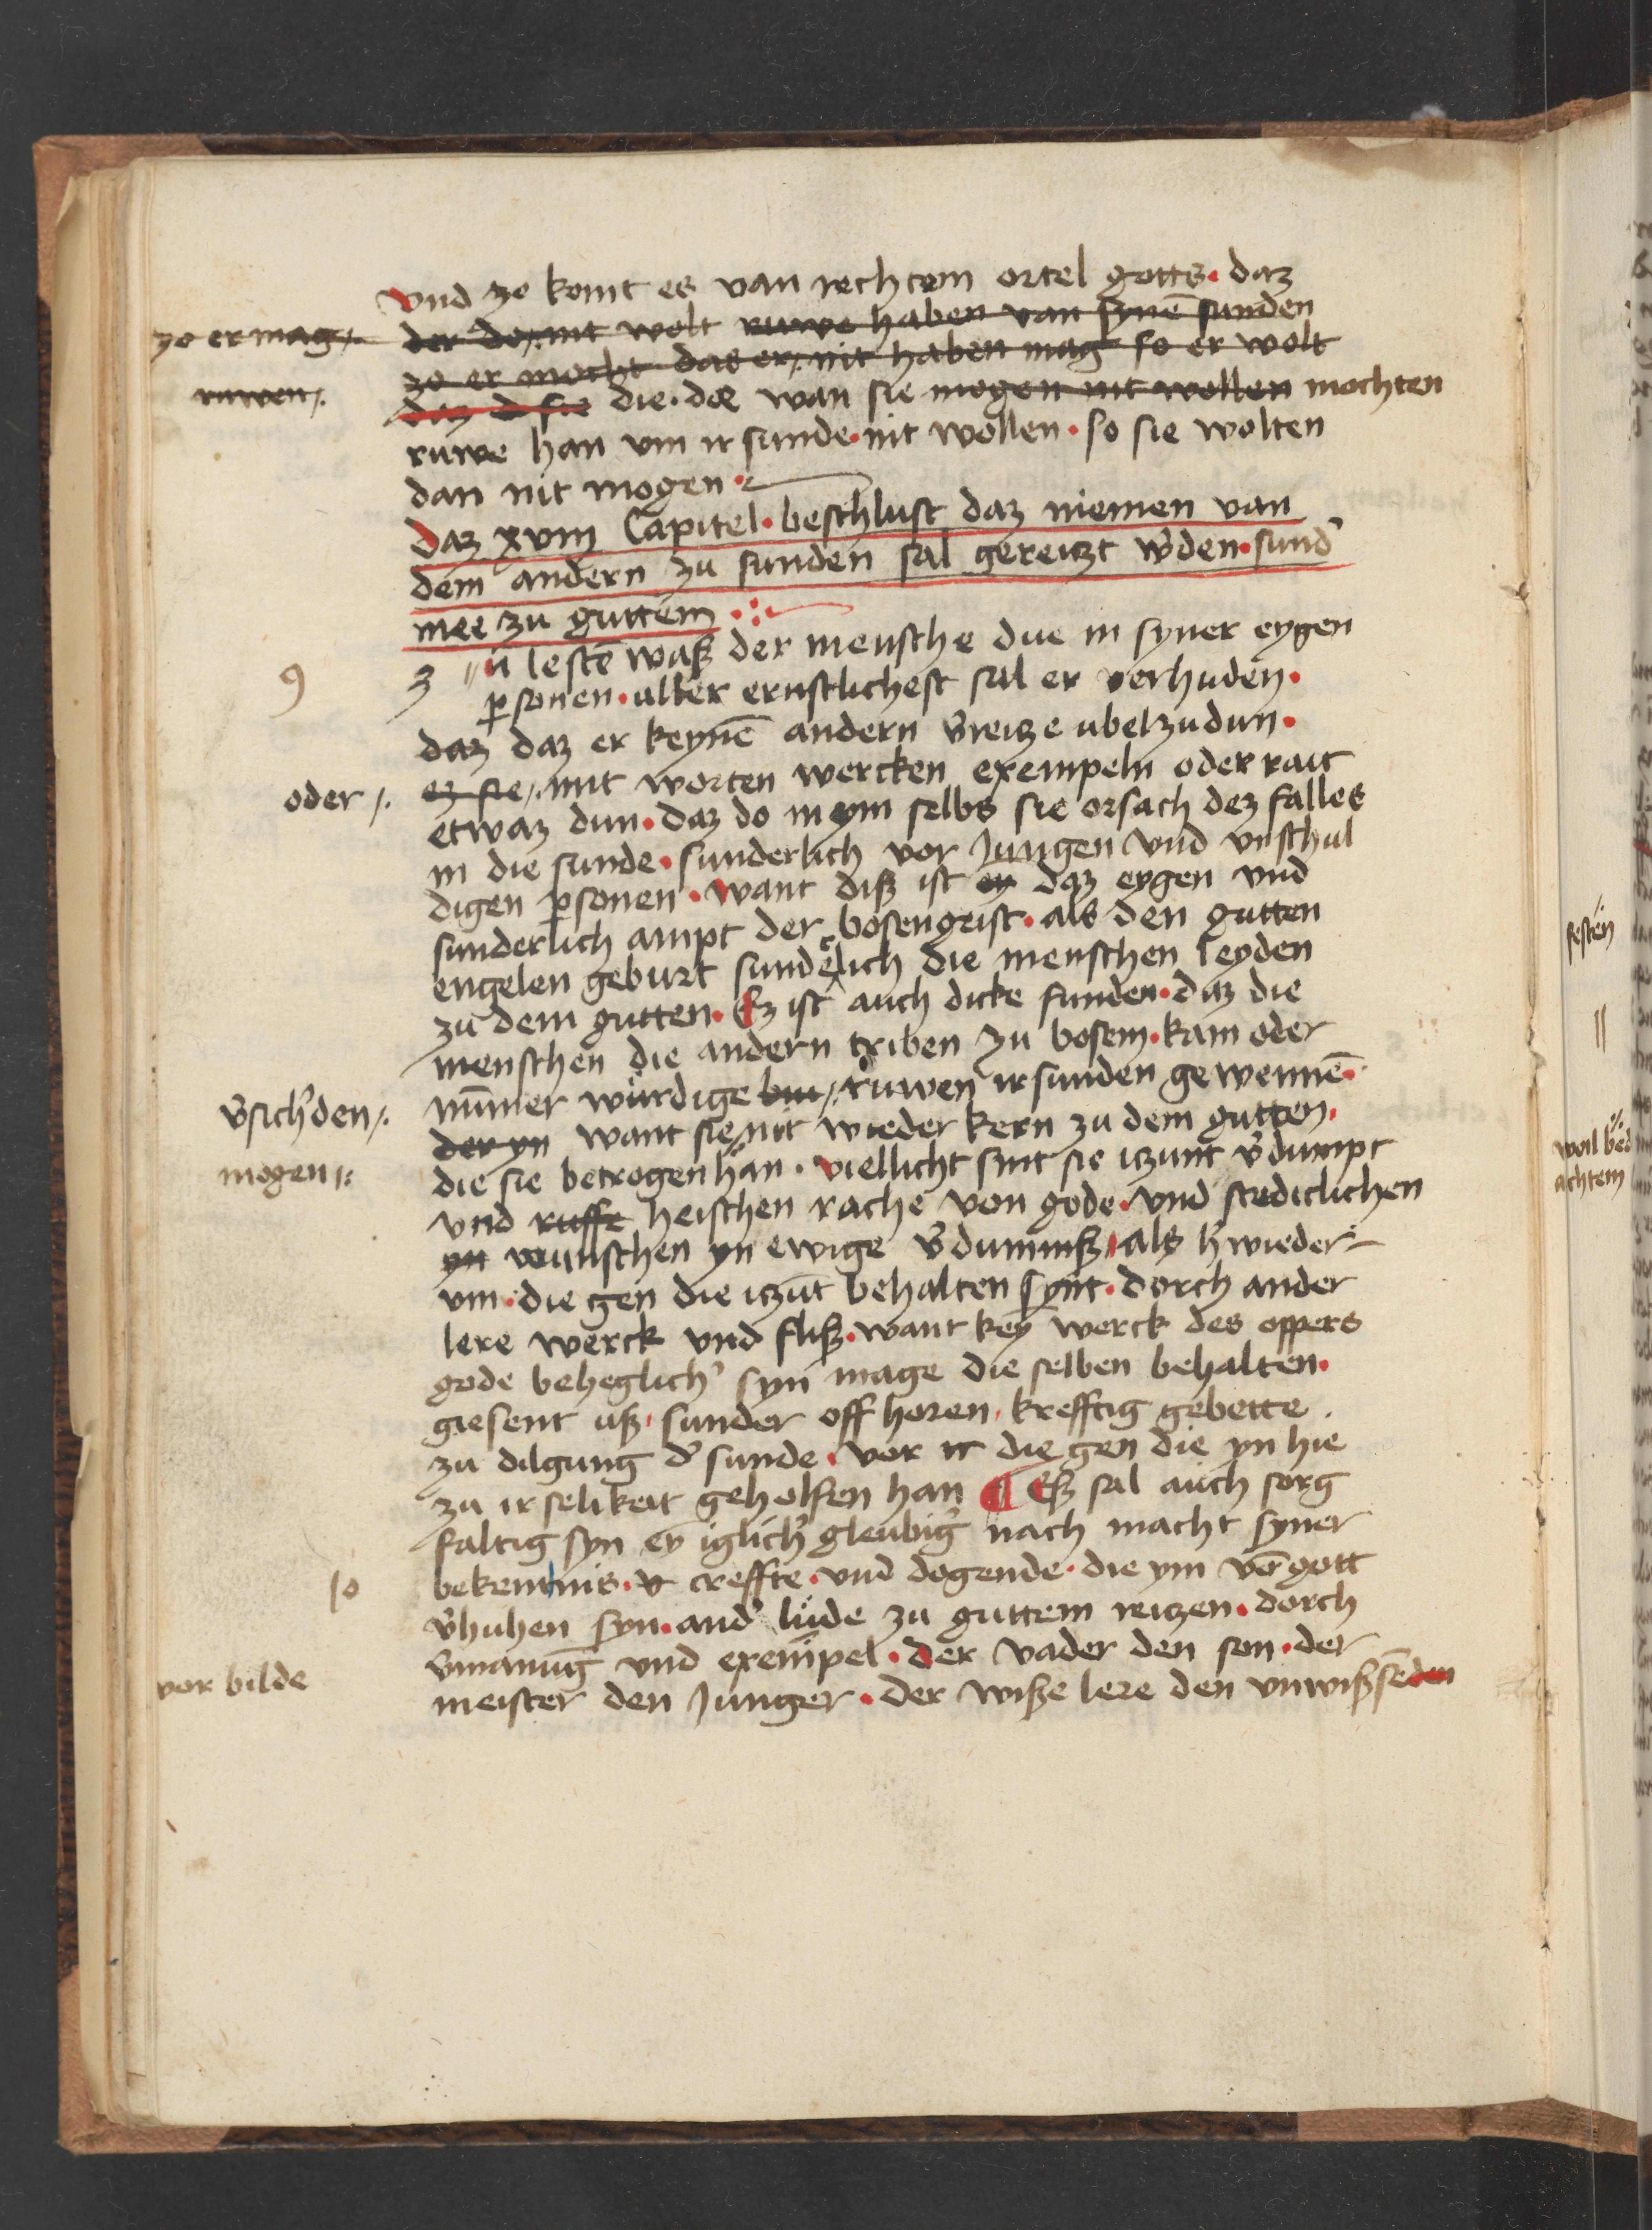 Vnd zo komt es van rechtem ortel gotts· daz
zo er mag·/.
der do·/. nit wolt ruwe haben van synē sunden
zo er mocht das er·/. nit haben mag so er wolt
ruwen·/.
daz d sie die· die wan sie mogen nit wollen mochten
ruwe han vm ir sunde· nit wollen· so sie wolten
dan nit mogen·
Daz xvııȷ Capitel· beschlust daz niemen van
dem andern zu sunden sal gereitzt w̄den· sund̓
mee zu guttem
9
Z u lestē waß der mensche due in syner eygen
ꝑsonen· aller ernstlichest sal er verhuden·
daz daz er keynē andern v̄reitze ubel zu dun·
oder·/.
ez sie·/. mit worten wercken exempeln oder rait
etwaz dun· daz do in eym selbs sie orsach dez falles
in die sunde· sunderlich vor Jungen vnd vnschul
digen ꝑsonen· Want diß ist ey daz eygen vnd
sunderlich ampt der bosengeist· als den gutten
engelen geburt sunderlich die menschen leyden
zu dem gutten· Ez ist auch dicke funden· daz die
menschen die andern triben zu bosem· kam oder
v̄sich̓den·/.
nūmer würdige bın·/. ruwen ir sunden gewennē·
der yn want sie nit wieder kern zu dem gutten·
mogen·/:
die sie betrogen han· viellicht sint sie itzunt v̄dumpt
vnd ruffe heischen rache von gode· vnd stediclichen
yn wunschen yn ewige v̄dumniß· als h̓wieder
vm· die gen die itzūt behalten synt· dorch ander
lere werck vnd fliß· want key werck des oppers
gode beheglich̓ syn mage die selben behalten·
giesent uß· sunder off horen· krefftig gebette·
zu dilgung d̓ sunde· vor ir die gen die yn hie
zu ir selikeit geholfen han ¶ Eß sal auch sorg
faltig syn ey iglich̓ gleubig̓ nach macht syner
10
bekentnis· v creffte· vnd dogende· die ym vō gott
v̄luhen syn· and̓ lüde zu guttem reitzen· dorch
v̄manūg vnd exempel· Der vader den son· der
vor bilde
meister den Junger· der wiße lere den vnwißēden